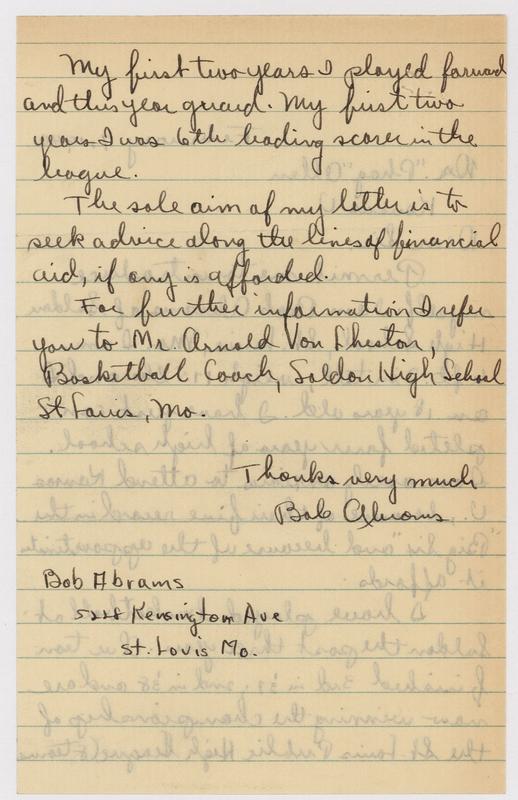 My first two years I played forward
and this year guard. My first two
years I was 6th leading scorer in the
league.
The sole aim of my letter is to
seek advice along the lines of financial
aid, if any is afforded.
For further information I refer
you to Mr. Arnold Von
Basketball Coach, Soldon High School
St Louis, Mo.
Thanks very much
Bob Abrams
Bob Abrams
5228 Kensington Ave
St. Louis Mo.